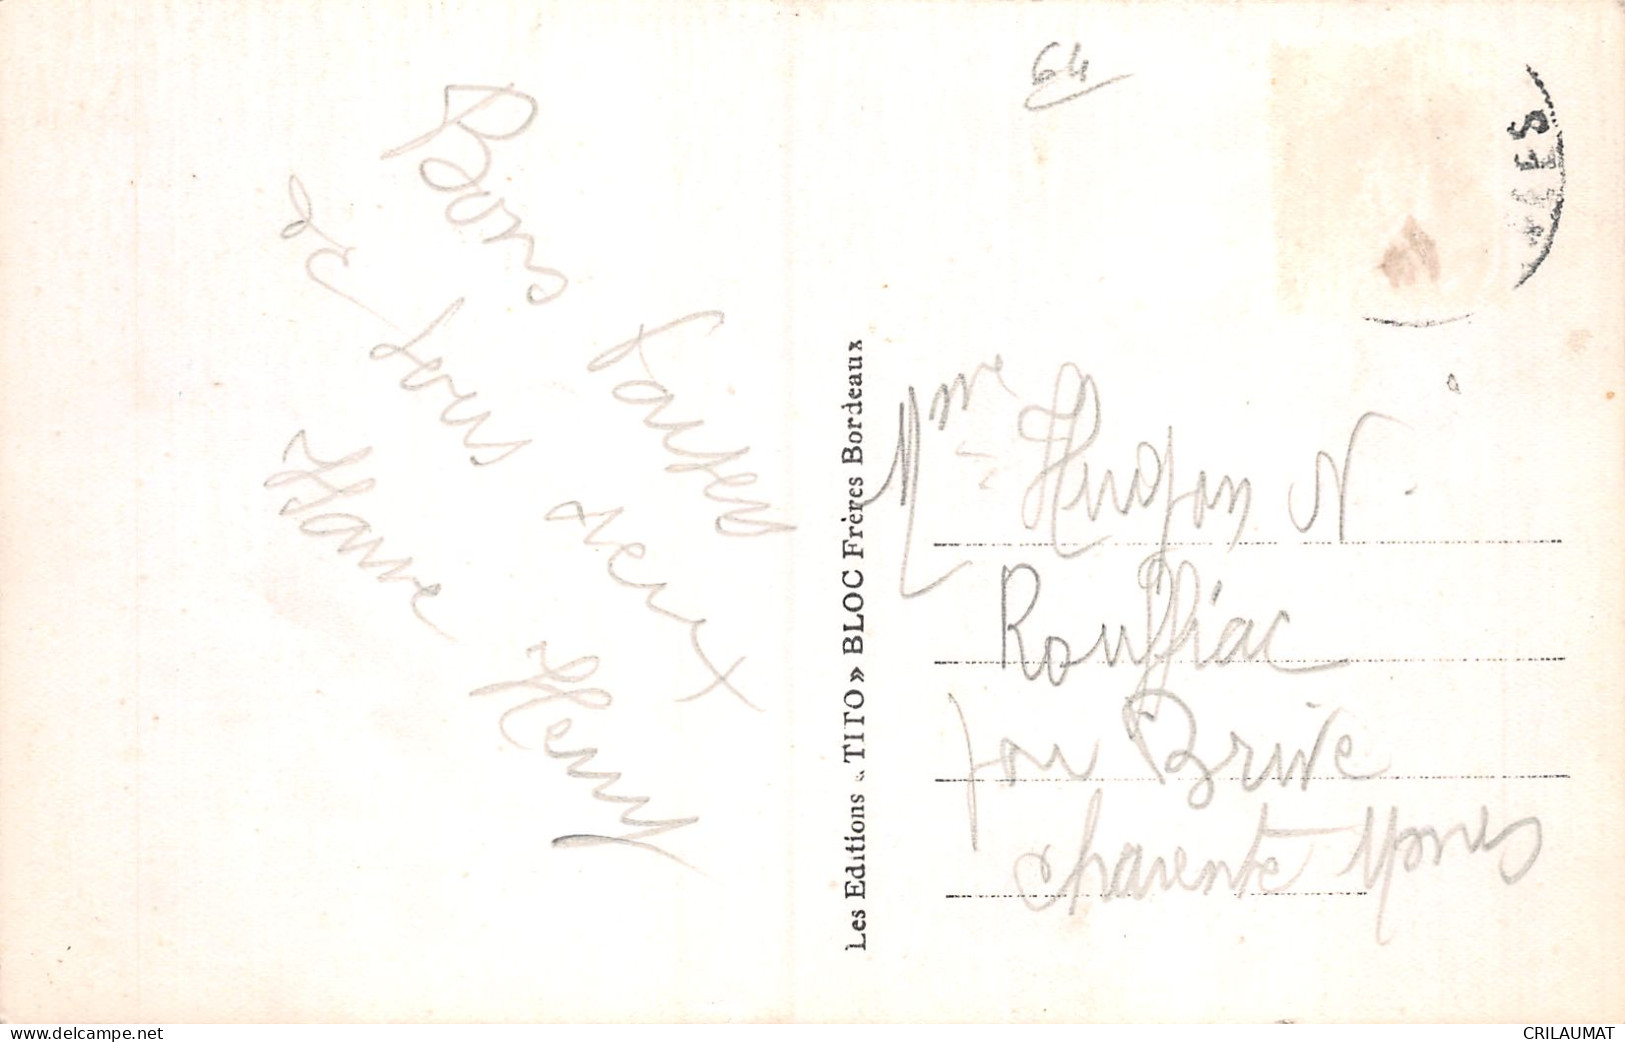 Bons baisers
de tous
deux
Henry
64
Les Editions « TITO » BLOC Frères Bordeaux
Mme Hugon N.
Rouffiac
par Brive
Charente
www.delcampe.net
CRILAUMAT